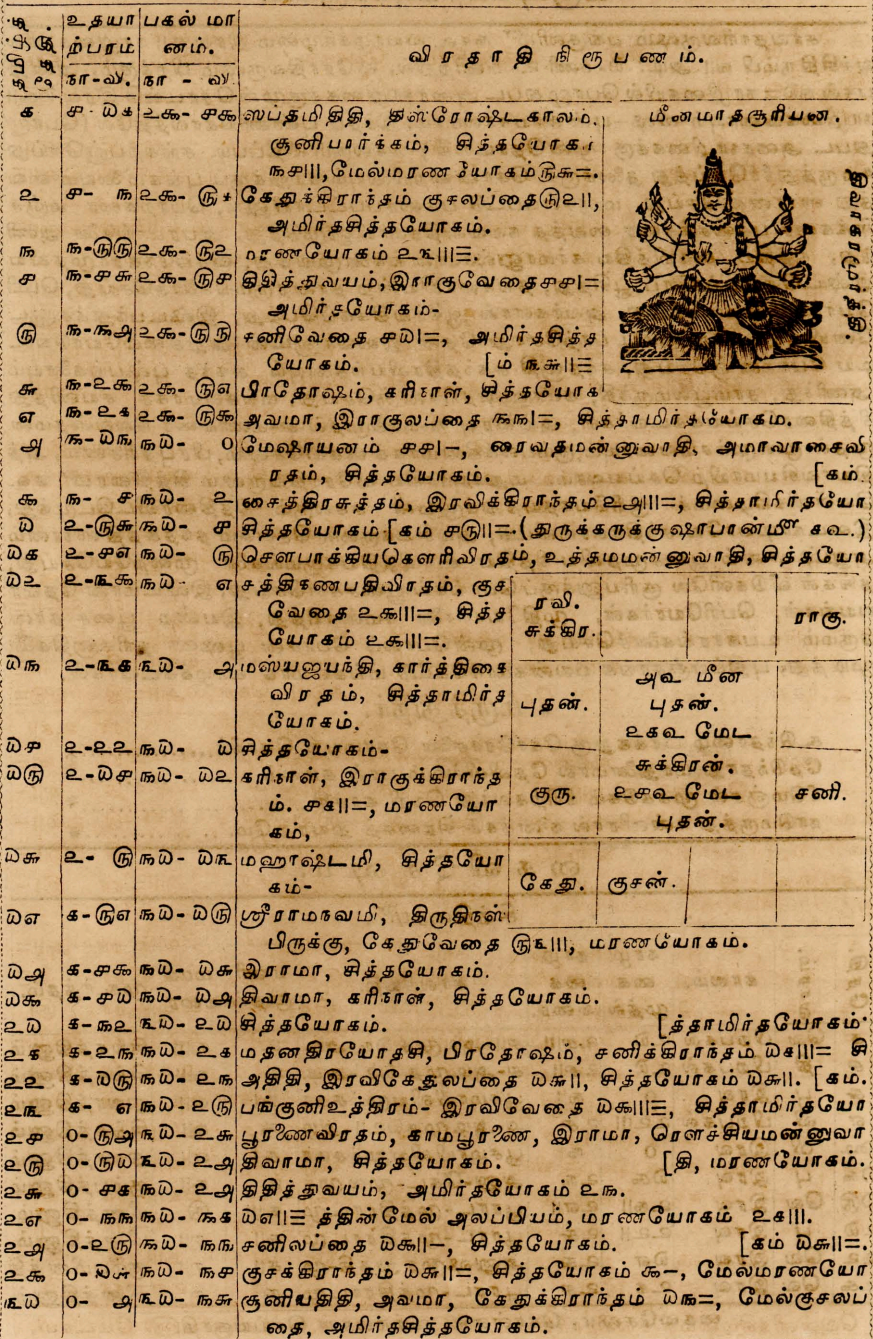 உதயா பகல் மா
ற்பரம் ணம். விரதாதி நிரூபணம்.
நா-வி. நா - வி.
க ௪- ௰௧ ௨௯- ௪௯ ஸப்தமிதிதி, காலம். மீனமாதசூரியன்.
சித்தயோக
௩௪|||, மேல்மரண யோகம்
௨ ௪- ௩ ௨௯- கேதுக்கிராந்தம் குசலப்தை௫௨||,
அமிர்தசித்தயோகம்.
௩ ௩-௫௫ ௨௯-௫௨ மரணயோகம்
௪ ௩-௪௬ ௨௯-௫௪ திதித்துவயம், இராகுவேதை௪௪|=
அமிர்தயோகம்-
௫ ௩-௩௮ ௨௯-௫௫ சனிவேதை ௪௰|=, அமிர்தசித்த
யோகம். [ம் ௩௬||≡
௬ ௩-௨௯ ௨௯-௫௭ பிரதோஷம், கரிநாள், சித்தயோக
௭ ௩-௨௧ ௨௯-௫௯ அவமா, இராகுலப்தை ௩௩|=, சித்தாமிர்தயோகம்.
௮ ௩-௰௩ ௩௰- ௦ மேஷாயனம் ௪௪|-, ரைவதமன்னுவாதி, அமாவாசைவி
ரதம், சித்தயோகம். [கம்.
௯ ௩- ௪ ௩௰- ௨ சைத்திரசுத்தம், இரவிக்கிராந்தம் ௨௮|||=, சித்தாமிர்தயோ
௰ ௨-௫௬ ௩௰- ௪ சித்தயோகம் [கம் ௪௫||=.
௰௧ ௨-௪௭ ௩௰- ௫ சௌபாக்கியகௌரிவிரதம், உத்தமமன்னுவாதி, சித்தயோ
௰௨ ௨-௩௯ ௩௰- ௭ சத்திகணபதிவிரதம், குச
வேதை ௨௯|||=, சித்த
யோகம் ௨௯|||=.
ரவி. சுக்கிர. ராகு.
௰௩ ௨-௩௧ ௩௰- ௮ மஸ்யஜயந்தி, கார்த்திகை
விரதம், சித்தாமிர்த
யோகம்.
புதன். ௮௳ மீன புதன். ௨௧௳ மேட
௰௪ ௨-௨௨ ௩௰- ௰ சித்தயோகம்-
௰௫ ௨-௰௪ ௩௰- ௰௨ கரிநாள், இராகுக்கிராந்த
ம். ௪௧||=, மரணயோ
கம்,
குரு. சுக்கிரன். ௨௪௳ மேட புதன். சனி.
௰௬ ௨- ௫ ௩௰- ௰௩ மஹாஷ்டமி, சித்தயோ
கம்-
கேது. குசன்.
௰௭ ௧-௫௭ ௩௰-௰௫ ஸ்ரீராமநவமி, திருதிநஸ்
பிருக்கு, கேதுவேதை ௫௩|||, மரணயோகம்.
௰௮ ௧-௪௯ ௩௰- ௰௬ இராமா, சித்தயோகம்.
௰௯ ௧-௪௰ ௩௰- ௰௮ திவாமா, கரிநாள், சித்தயோகம்.
௨௰ ௧-௩௨ ௩௰- ௨௰ சித்தயோகம். [த்தாமிர்தயோகம்.
௨௧ ௧-௨௩ ௩௰- ௨௧ மதனதிரயோதசி, பிரதோஷம், சனிக்கிராந்தம் ௰௧|||= சி
௨௨ ௧-௰௫ ௩௰- ௨௩ அதிதி, இரவிகேதுலப்தை ௰௬||, சித்தயோகம் ௰௬||. [கம்.
௨௩ ௧- ௭ ௩௰-௨௫ பங்குனிஉத்திரம்- இரவிவேதை ௰௯|||≡, சித்தாமிர்தயோ
௨௪ ௦-௫௮ ௩௰- ௨௬ பூரணைவிரதம், காமபூரணை, இராமா, ரௌச்சியமன்னுவா
௨௫ ௦-௫௰ ௩௰-௨௮ திவாமா, சித்தயோகம். [தி, மரணயோகம்.
௨௬ ௦- ௪௧ ௩௰- ௨௮ திதித்துவயம், அமிர்தயோகம் ௨௩.
௨௭ ௦- ௩௩ ௩௰- ௩௧ ௰௭||≡ த்தின்மேல் அலப்பியம், மரணயோகம் ௨௧|||.
௨௮ ௦-௨௫ ௩௰- ௩௩ சனிலப்தை ௰௯||-, சித்தயோகம். [கம் ௰௬||=.
௨௯ ௦- ௰௬ ௩௰- ௩௪ குசக்கிராந்தம் ௰௬||=, சித்தயோகம் ௯-, மேல்மரணயோ
௩௰ ௦- ௮ ௩௰- ௩௬ சூனியதிதி, அவமா, கேதுக்கிராந்தம் ௰௩=, மேல்குசலப்
தை, அமிர்தசித்தயோகம்.